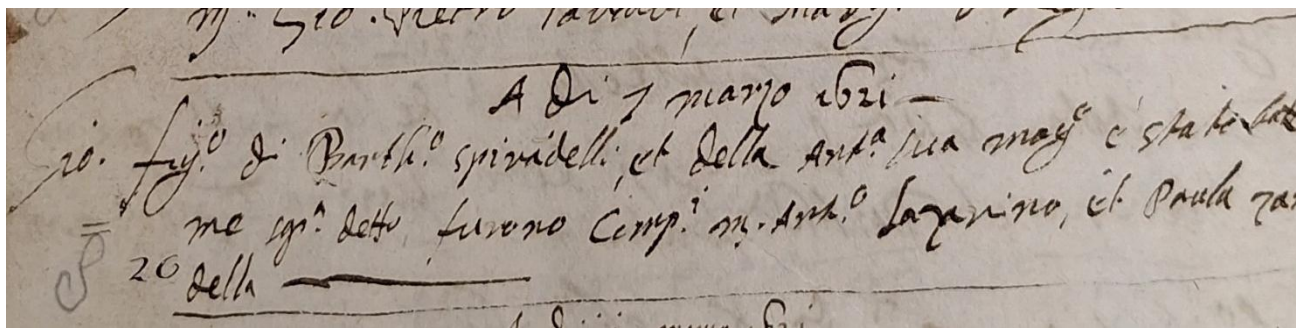 m. Gio. Pietro et mag.
A di 7 marzo 1621
Gio. fig.º di Barth.º spinadelli, et della Ant.ª sua mogˡᵉ è stato bat
me sp.ª detto, furono Comp.ⁱ m. Ant.º Lazarino, et Paula zan
20 della
A di marzo 1621